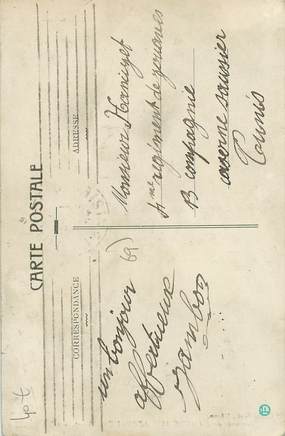 CARTE POSTALE
CORRESPONDANCE
ADRESSE
un bonjour
affectueux
Jambon
(69)
Monsieur
4me regiment de zouaves
13 compagnie
caserne saussier
Tunis
40 €